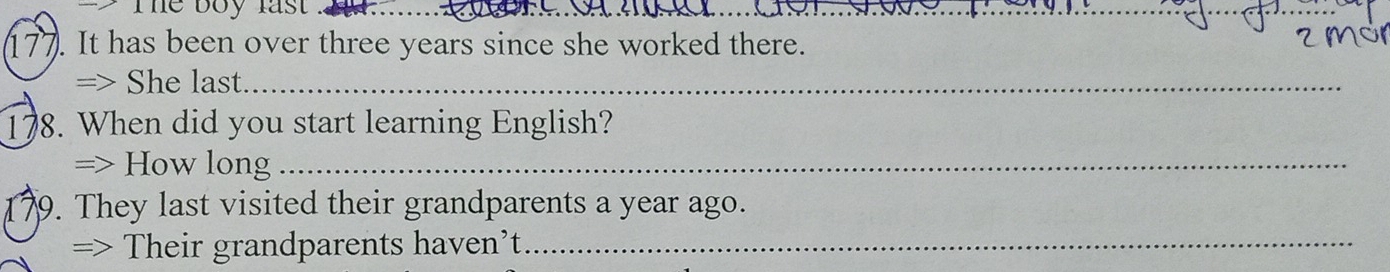 => The boy last
2 mon
177. It has been over three years since she worked there.
=> She last
178. When did you start learning English?
=> How long
179. They last visited their grandparents a year ago.
=> Their grandparents haven't